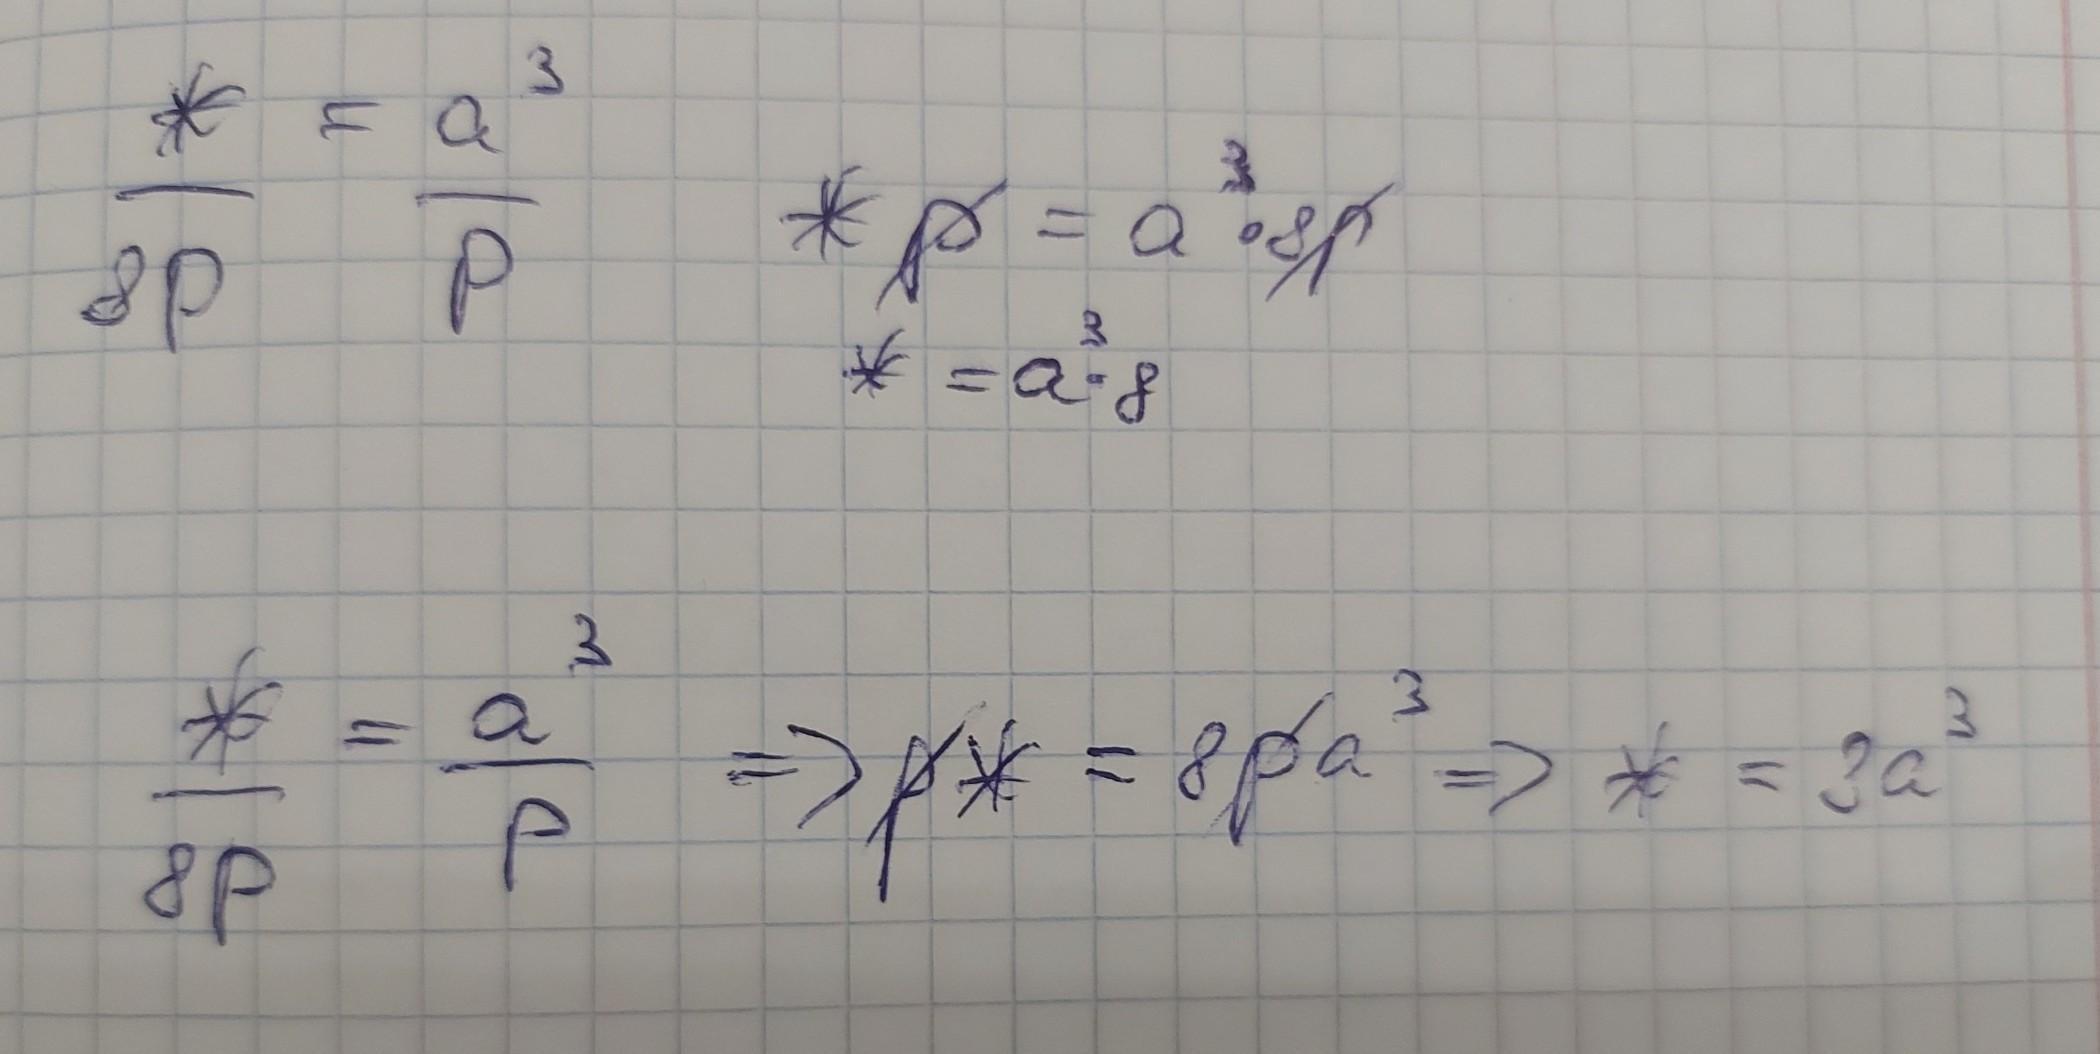 */8p = a³/p
*p = a³·8p
* = a³·8
*/8p = a³/p => p* = 8pa³ => * = 8a³